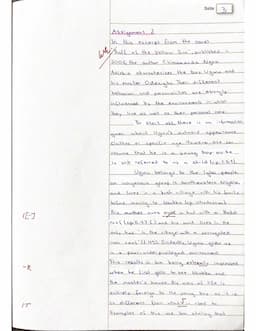 Date 3
Assignment 2
In this excerpt from the novel
"Half of the Yellow Sun", published in
2006 the author Chimamanda Ngozi
Adichie characterizes the boy Ugwu and
his master Odenigbo. Their different
behavior and personalities are strongly
influenced by the environment in which
they live as well as their personal
To start off, there is no
given about Ugwu's outward appearance
Clothes or specific age. Therefore, we can
assume that he is a young boy as he
is not referred to as a child
Ugwu belongs to the Igbo people,
an indigenous group in Southeastern Nigeria,
and lives in a bush village with his family
before moving to
His mother
and his aunt lives in the
only hut in the village with a corrugated
Evidently, Ugwu grew up
in a poor under-privileged environment.
This results in him being extremely impressed
when he first gets to see Nsukka and
the master's house. The way of life is
entirely foreign to the young boy as it is
so different from
Examples of this are him stating that
-R